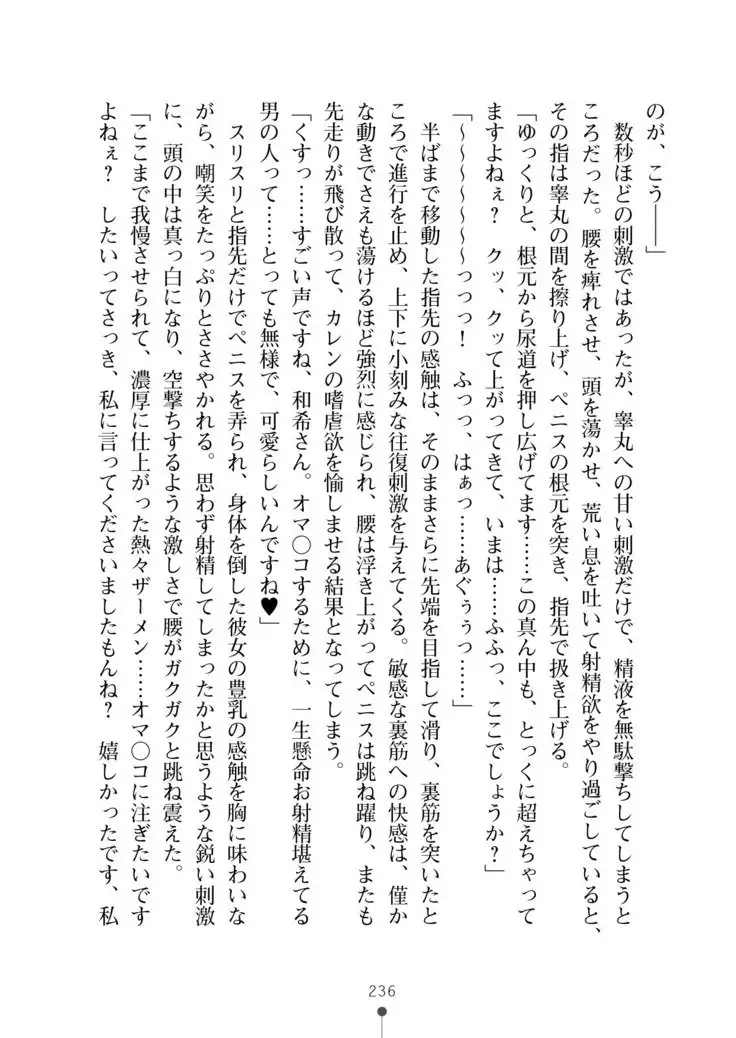 のが、こう――」
　数秒ほどの刺激ではあったが、睾丸への甘い刺激だけで、精液を無駄撃ちしてしまうと
ころだった。腰を痺れさせ、頭を蕩かせ、荒い息を吐いて射精欲をやり過ごしていると、
その指は睾丸の間を擦り上げ、ペニスの根元を突き、指先で扱き上げる。
「ゆっくりと、根元から尿道を押し広げてます……この真ん中も、とっくに超えちゃって
ますよねぇ？　クッ、クッて上がってきて、いまは……ふふっ、ここでしょうか？」
「～～～～～～～っっっ！　ふっっ、はぁっ……あぐぅぅっ……」
　半ばまで移動した指先の感触は、そのままさらに先端を目指して滑り、裏筋を突いたと
ころで進行を止め、上下に小刻みな往復刺激を与えてくる。敏感な裏筋への快感は、僅か
な動きでさえも蕩けるほど強烈に感じられ、腰は浮き上がってペニスは跳ね躍り、またも
先走りが飛び散って、カレンの嗜虐欲を愉しませる結果となってしまう。
「くすっ……すごい声ですね、和希さん。オマ〇コするために、一生懸命お射精堪えてる
男の人って……とっても無様で、可愛らしいんですね♥」
　スリスリと指先だけでペニスを弄られ、身体を倒した彼女の豊乳の感触を胸に味わいな
がら、嘲笑をたっぷりとささやかれる。思わず射精してしまったかと思うような鋭い刺激
に、頭の中は真っ白になり、空撃ちするような激しさで腰がガクガクと跳ね震えた。
「ここまで我慢させられて、濃厚に仕上がった熱々ザーメン……オマ〇コに注ぎたいです
よねぇ？　したいってさっき、私に言ってくださいましたもんね？　嬉しかったです、私
236